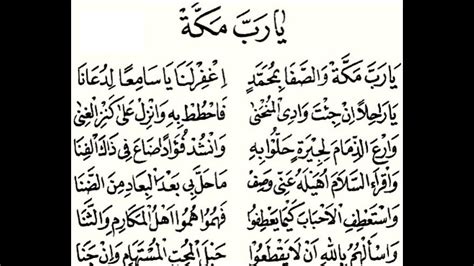 يَا رَبَّ مَكَّةَ
يَا رَبَّ مَكَّةَ وَالصَّفَا بِمُحَمَّدٍ اِغْفِرْ لَنَا يَا سَامِعًا لِدُعَانَا
يَا رَاحِلًا اِنْ جِئْتَ وَادِى الْمُنْحَنٰى فَاحْطُطْ بِهِ وَانْزِلْ عَلٰى كَنْزِ الْغِنٰى
وَارْعَ الذِّمَامَ لِجِيْرَةٍ حَلُّوْا بِهِ وَانْشُدْ فُؤَادًا ضَاعَ فِى ذَاكَ الْفِنَا
وَاقْرَأِ السَّلَامَ اُهَيْلَهُ عَنِّى وَصِفْ مَا حَلَّ بِى بَعْدَ الْبِعَادِ مِنَ الضَّنَا
وَاسْتَعْطِفِ الْاَحْبَابَ كَيْمَا يَعْطِفُوْا فَهُمُوْا هُمُوْا اَهْلُ الْمَكَارِمِ وَالثَّنَا
وَاسْأَلْهُمُ بِاللهِ اَنْ لَا يَقْطَعُوْا حَبْلَ الْمُحِبِّ الْمُسْتَهَامِ وَاِنْ جَنَا